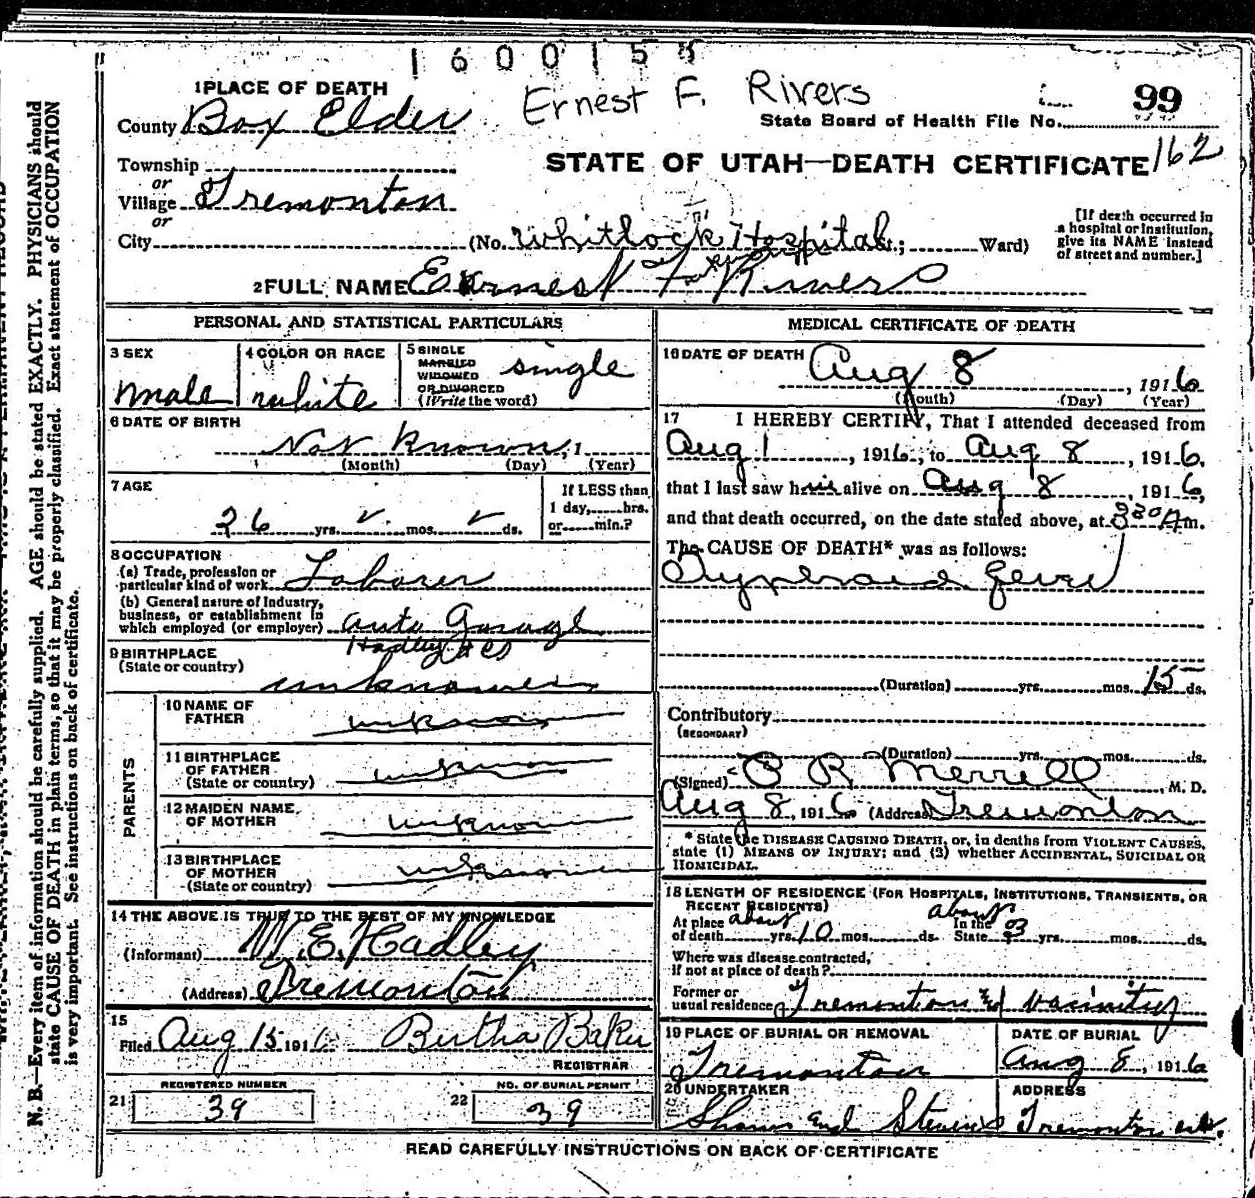 1600155
Ernest F. Rivers
99
State Board of Health File No.
162
1 PLACE OF DEATH
County Box Elder
Township
or
Village Tremonton
or
City (No. Whitlock Hospital ; Ward)
STATE OF UTAH—DEATH CERTIFICATE
[If death occurred in
a hospital or institution,
give its NAME instead
of street and number.]
2 FULL NAME Ernest F Rivers
PERSONAL AND STATISTICAL PARTICULARS
3 SEX
male
4 COLOR OR RACE
white
5 SINGLE
MARRIED
WIDOWED
OR DIVORCED
(Write the word)
single
6 DATE OF BIRTH
Not Known, 1
(Month) (Day) (Year)
7 AGE
26 yrs. mos. ds.
If LESS than
1 day, hrs.
or min.?
8 OCCUPATION
(a) Trade, profession or
particular kind of work Laborer
(b) General nature of Industry,
business, or establishment in
which employed (or employer) auto Garage
Hadley
9 BIRTHPLACE
(State or country)
unknown
PARENTS
10 NAME OF
FATHER
unknown
11 BIRTHPLACE
OF FATHER
(State or country)
unknown
12 MAIDEN NAME
OF MOTHER
unknown
13 BIRTHPLACE
OF MOTHER
(State or country)
unknown
14 THE ABOVE IS TRUE TO THE BEST OF MY KNOWLEDGE
(Informant) W. E. Hadley
(Address) Tremonton
15
Filed Aug 15 1916 Bertha Baker
REGISTRAR
REGISTERED NUMBER
21 39
NO. OF BURIAL PERMIT
22 39
MEDICAL CERTIFICATE OF DEATH
16 DATE OF DEATH
Aug 8, 1916
(Month) (Day) (Year)
17 I HEREBY CERTIFY, That I attended deceased from
Aug 1, 1916, to Aug 8, 1916,
that I last saw him alive on Aug 8, 1916,
and that death occurred, on the date stated above, at 320 Am.
The CAUSE OF DEATH* was as follows:
Typhoid fever
(Duration) yrs. mos. 15 ds.
Contributory
(SECONDARY)
(Duration) yrs. mos. ds.
(Signed) R Merrell, M. D.
Aug 8, 1916 (Address) Tremonton
* State the DISEASE CAUSING DEATH, or, in deaths from VIOLENT CAUSES,
state (1) MEANS OF INJURY; and (3) whether ACCIDENTAL, SUICIDAL OR
HOMICIDAL.
18 LENGTH OF RESIDENCE (FOR HOSPITALS, INSTITUTIONS, TRANSIENTS, OR
RECENT RESIDENTS)
At place about In the about
of death yrs. 10 mos. ds. State 3 yrs. mos. ds.
Where was disease contracted,
if not at place of death?
Former or
usual residence Tremonton and vacinity
19 PLACE OF BURIAL OR REMOVAL
Tremonton
DATE OF BURIAL
Aug 8, 1916
20 UNDERTAKER
and Stevens
ADDRESS
Tremonton
READ CAREFULLY INSTRUCTIONS ON BACK OF CERTIFICATE
N. B.—Every item of information should be carefully supplied. AGE should be stated EXACTLY. PHYSICIANS should
state CAUSE OF DEATH in plain terms, so that it may be properly classified. Exact statement of OCCUPATION
is very important. See instructions on back of certificate.